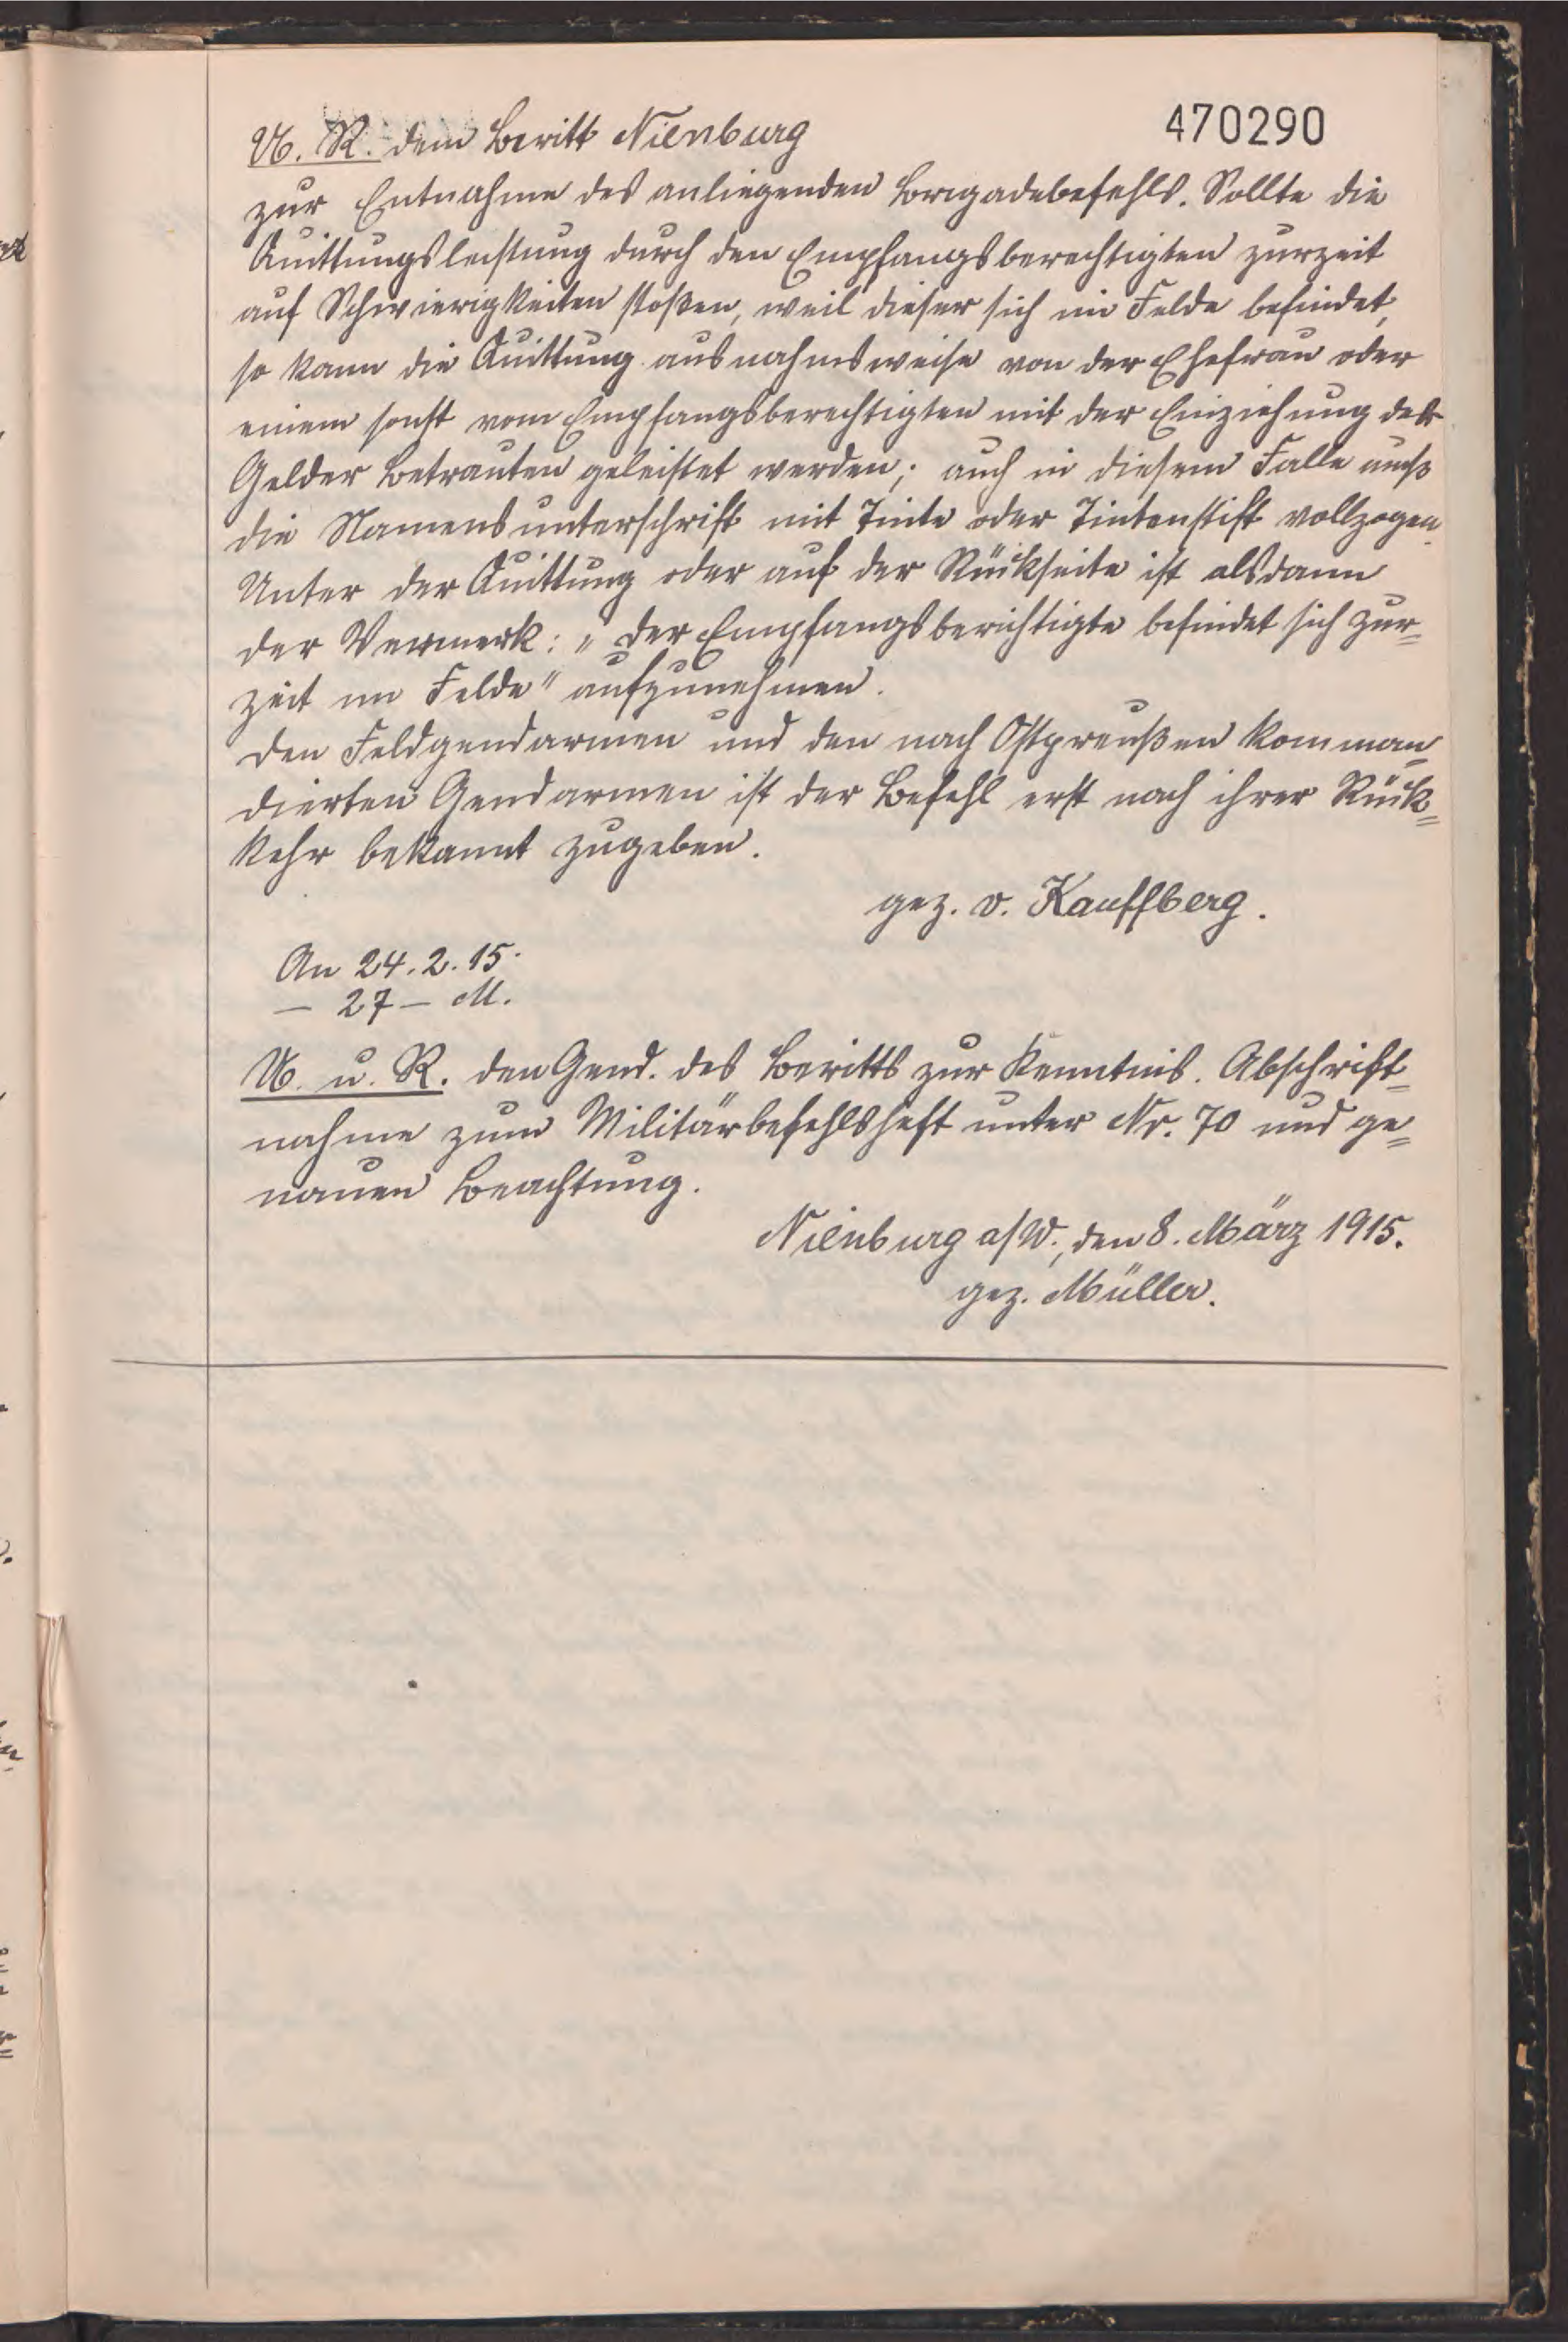 470290
U. R. dem Beritt Nienburg
zur Entnahme des anliegenden Brigadebefehls. Sollte die
Quittungsleistung durch den Empfangsberechtigten zurzeit
auf Schwierigkeiten stoßen, weil dieser sich im Felde befindet,
so kann die Quittung ausnahmsweise von der Ehefrau oder
einem sonst vom Empfangsberechtigten mit der Einziehung der
Gelder Betrauten geleistet werden; auch in diesem Falle muß
die Namensunterschrift mit Tinte oder Tintenstift vollzogen.
Unter der Quittung oder auf der Rückseite ist alsdann
der Vermerk: „Der Empfangsberichtigte befindet sich zur=
zeit im Felde" aufzunehmen.
Den Feldgendarmen und den nach Ostpreußen komman=
dierten Gendarmen ist der Befehl erst nach ihrer Rück=
kehr bekannt zugeben.
gez. v. Kauffberg.
An 24.2.15.
– 27 – M.
U. u. R. den Gend. des Beritts zur Kenntnis. Abschrift=
nahme zum Militärbefehlsheft unter Nr. 70 und ge=
nauen Beachtung.
Nienburg a/W., den 8. März 1915.
gez. Müller.